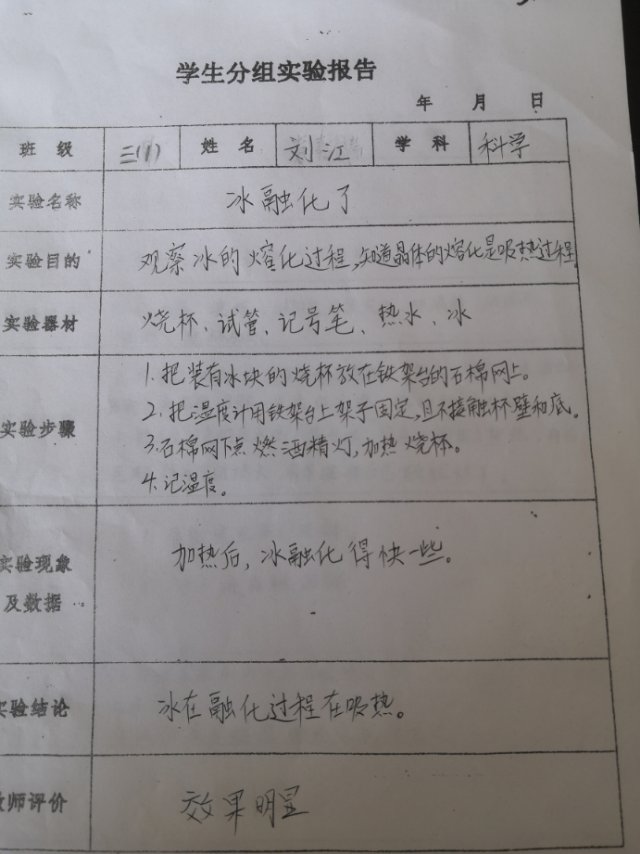 学生分组实验报告
年 月 日
班 级 三(1) 姓 名 刘江 学 科 科学
实验名称 冰融化了
实验目的 观察冰的熔化过程,知道晶体的熔化是吸热过程。
实验器材 烧杯、试管、记号笔、热水、冰
实验步骤
1.把装有冰块的烧杯放在铁架台的石棉网上。
2.把温度计用铁架台上架子固定,且不接触杯壁和底。
3.石棉网下点燃酒精灯,加热烧杯。
4.记温度。
实验现象
及数据
加热后,冰融化得快一些。
实验结论 冰在融化过程在吸热。
教师评价 效果明显